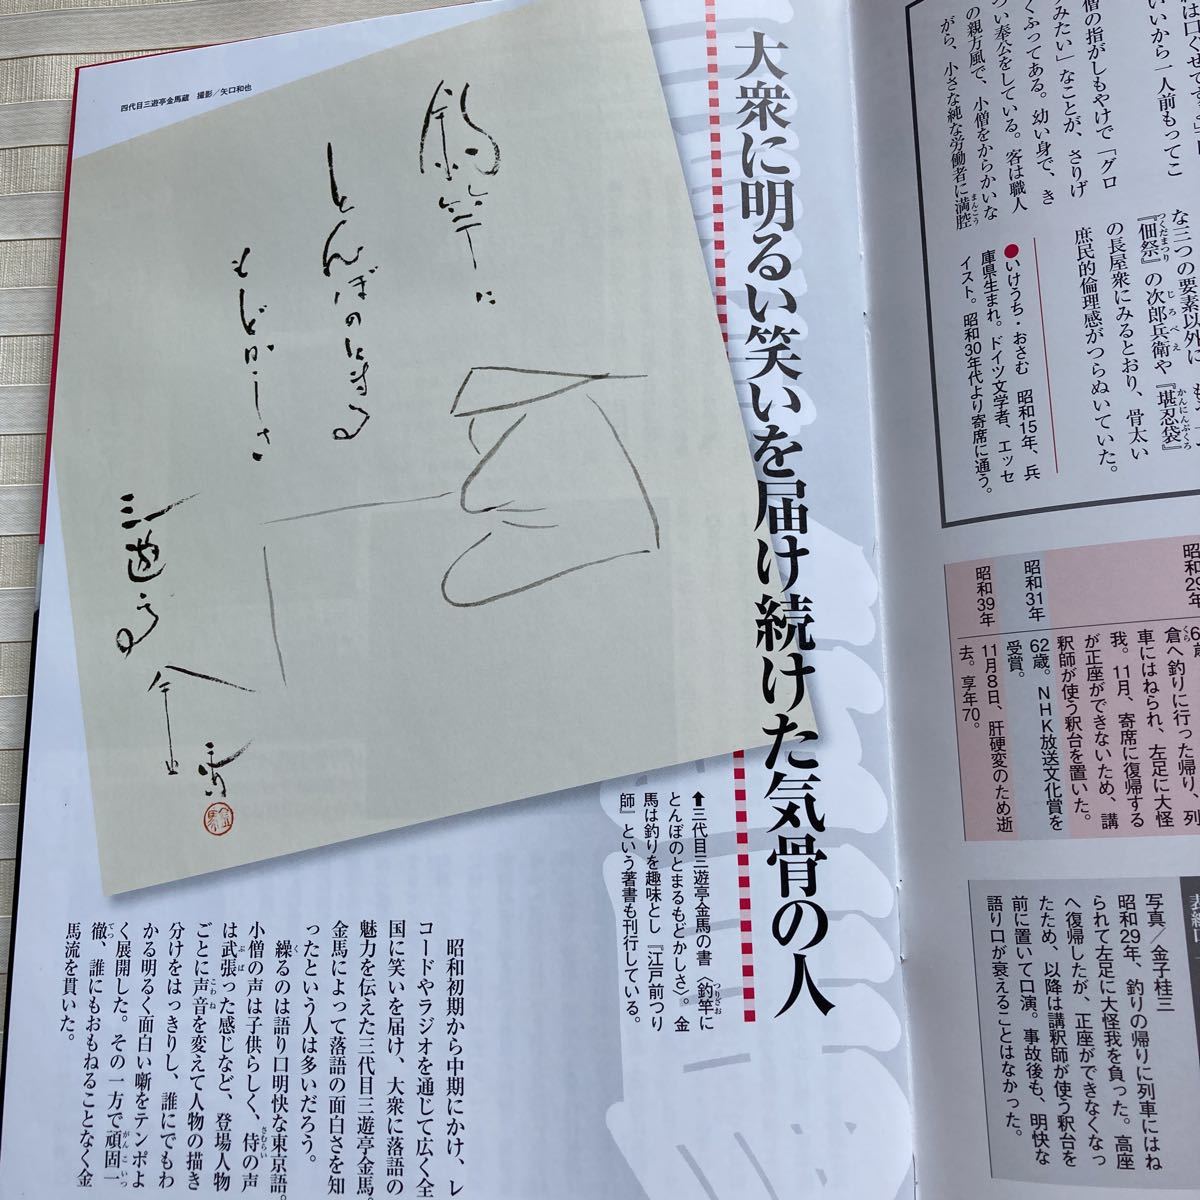 は口ぐせです。
いいから一人前もってこ
僧の指がしもやけで「グロ
みたい」なことが、さりげ
くふってある。幼い身で、き
つい奉公をしている。客は職人
の親方風で、小僧をからかいな
がら、小さな純な労働者に満腔
な三つの要素以外に
『佃祭』の次郎兵衛や『堪忍袋』
の長屋衆にみるとおり、骨太い
庶民的倫理感がつらぬいていた。
●いけうち・おさむ 昭和15年、兵
庫県生まれ。ドイツ文学者、エッセ
イスト。昭和30年代より寄席に通う。
昭和29年
倉へ釣りに行った帰り、列
車にはねられ、左足に大怪
我。11月、寄席に復帰する
が正座ができないため、講
釈師が使う釈台を置いた。
昭和31年
62歳。NHK放送文化賞を
受賞。
昭和39年
11月8日、肝硬変のため逝
去。享年70。
写真／金子桂三
昭和29年、釣りの帰りに列車にはね
られて左足に大怪我を負った。高座
へ復帰したが、正座ができなくなっ
たため、以降は講釈師が使う釈台を
前に置いて口演。事故後も、明快な
語り口が衰えることはなかった。
大衆に明るい笑いを届け続けた気骨の人
四代目三遊亭金馬蔵 撮影／矢口和也
釣竿に
とんぼのとまる
もどかしさ
三遊亭
金馬
⬆三代目三遊亭金馬の書〈釣竿に
とんぼのとまるもどかしさ〉。金
馬は釣りを趣味とし『江戸前つり
師』という著書も刊行している。
昭和初期から中期にかけ、レ
コードやラジオを通じて広く全
国に笑いを届け、大衆に落語の
魅力を伝えた三代目三遊亭金馬。
金馬によって落語の面白さを知
ったという人は多いだろう。
繰るのは語り口明快な東京語。
小僧の声は子供らしく、侍の声
は武張った感じなど、登場人物
ごとに声音を変えて人物の描き
分けをはっきりし、誰にでもわ
かる明るく面白い噺をテンポよ
く展開した。その一方で頑固一
徹、誰にもおもねることなく金
馬流を貫いた。